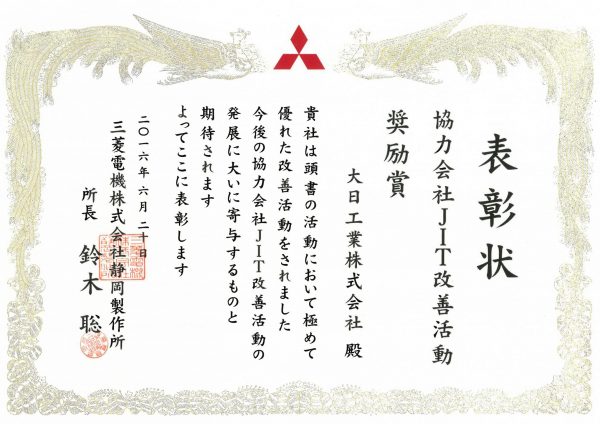 表彰状
協力会社JIT改善活動
奨励賞
大日工業株式会社 殿
貴社は頭書の活動において極めて
優れた改善活動をされました
今後の協力会社JIT改善活動の
発展に大いに寄与するものと
期待されます
よってここに表彰します
二〇一六年六月二十日
三菱電機株式会社静岡製作所
所長 鈴木 聡